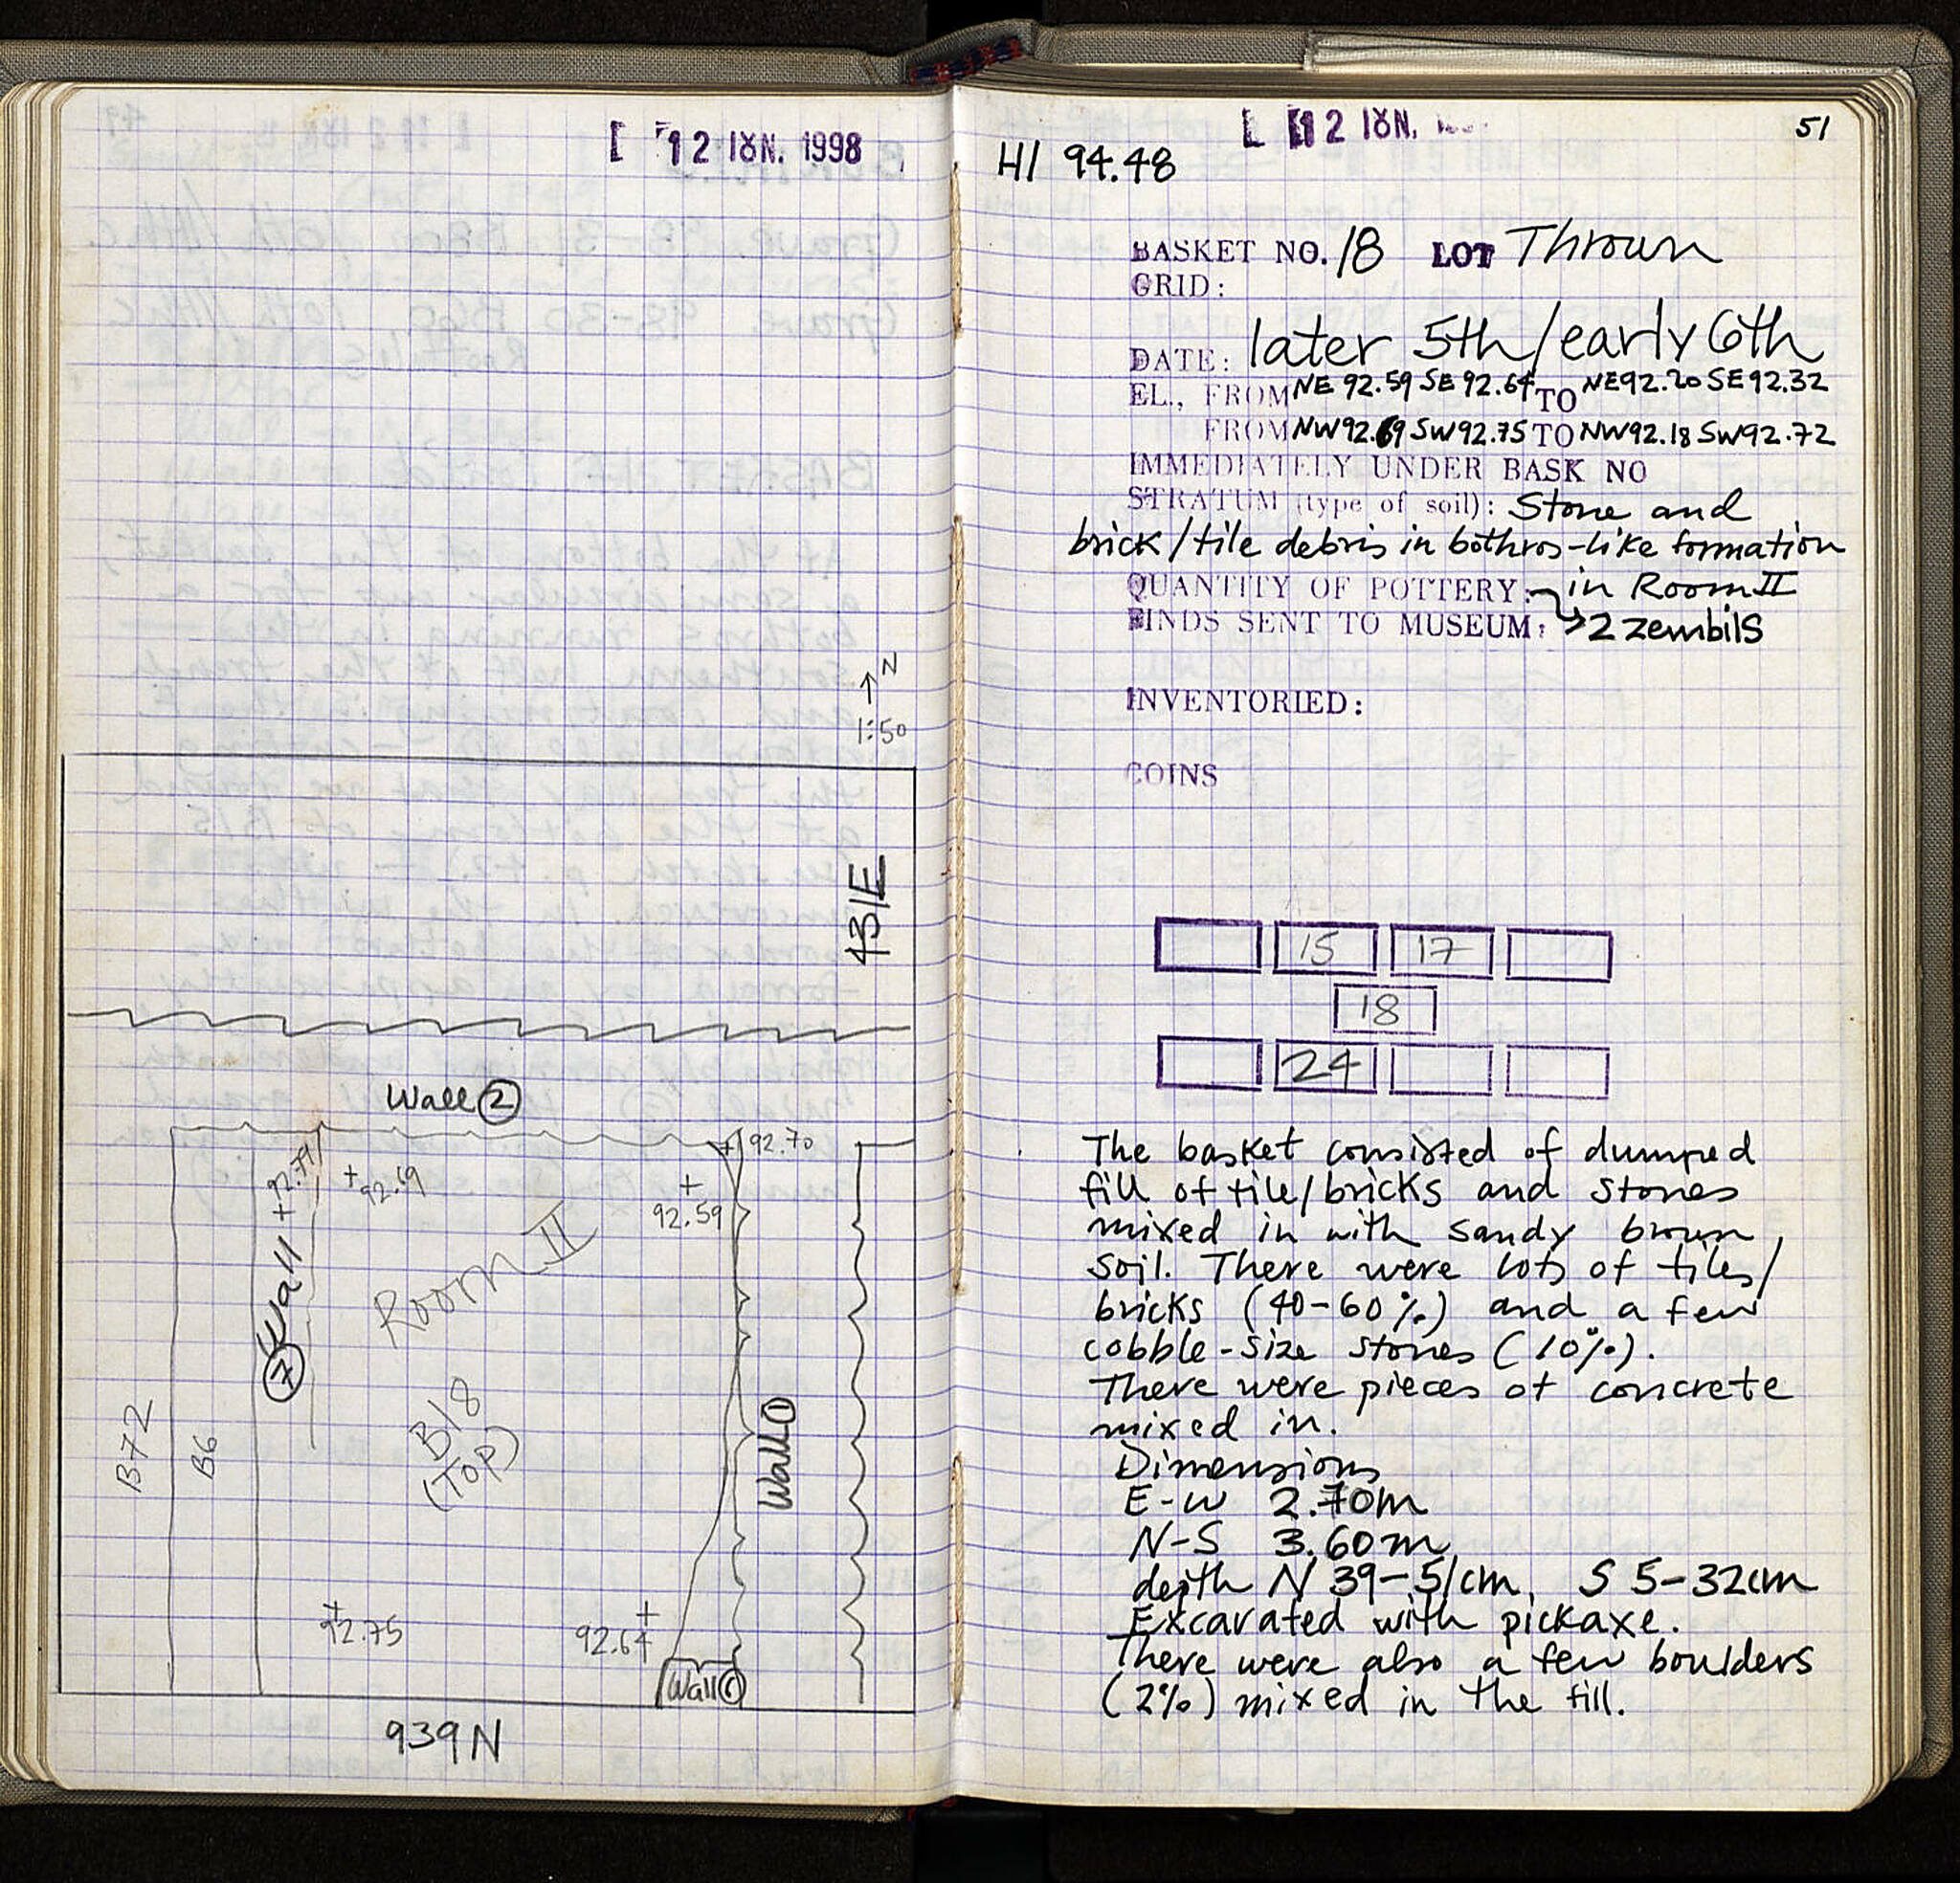 12 ΙΟΥΝ. 1998
N
1:50
431E
Wall ②
92.70
92.77
92.69
92.59
Wall
⑦
Room II
B18
(Top)
B72
B6
Wall ①
92.75
92.64
Wall ⑥
939N
12 ΙΟΥΝ.
51
HI 94.48
BASKET NO. 18 LOT Thrown
GRID:
DATE: later 5th/early 6th
EL., FROM NE 92.59 SE 92.64 TO NE 92.20 SE 92.32
FROM NW 92.69 SW 92.75 TO NW 92.18 SW 92.72
IMMEDIATELY UNDER BASK NO
STRATUM (type of soil): Stone and
brick/tile debris in bothros-like formation
QUANTITY OF POTTERY: in Room II
FINDS SENT TO MUSEUM: 2 zembils
INVENTORIED:
COINS
15 17
18
24
The basket consisted of dumped
fill of tile/bricks and stones
mixed in with sandy brown
soil. There were lots of tiles/
bricks (40-60%) and a few
cobble-size stones (10%).
There were pieces of concrete
mixed in.
Dimensions
E-W 2.70m
N-S 3.60m
depth N 39-51cm, S 5-32cm
Excavated with pickaxe.
There were also a few boulders
(2%) mixed in the fill.